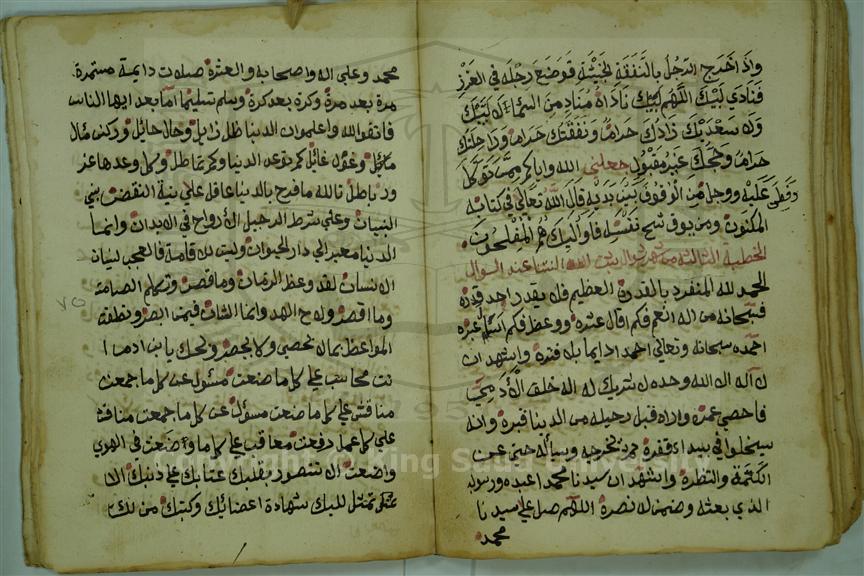 واذا خرج الرجل بالنفقة الخبيثة فوضع رجله في الغرز
فنادى لبيك اللهم لبيك ناداه مناد من السماء لا لبيك
ولا سعديك زادك حرام ونفقتك حرام وراحلتك
حرام وحجك غير مقبول جعلني الله واياكم ممن توكل
عليه ووجل من الوقوف بين يديه قال الله تعالى في كتابه
المكنون ومن يوق شح نفسه فاوليك هم المفلحون
الخطبة الثالثة من شهر شوال
الحمد لله المنفرد بالقدرة العظيم فلا يقدر احد قدره
فسبحانه من اله انعم فكم اقال عثره ووعظ فكم غبره
احمده سبحانه وتعالى احمدا دايما بلا فتره واشهد ان
لا اله الا الله وحده لا شريك له اله خلق الادمي
فاحصى عمره واراه قبل رحيله من الدنيا قبره وانه
سيخلوا في بيداي قفره ثم يخرجه ويساله حتى عن
الكلمة والنظرة واشهد ان سيدنا محمدا عبده ورسوله
الذي بعثه وضمن له نصرة اللهم صل على سيدنا
محمد
محمد وعلى اله واصحابه والعترة صلات دايمة مستمرة
مرة بعد مرة وكرة بعد كرة وسلم تسليما اما بعد ايها الناس
فاتقوا الله واعلموا ان الدنيا ظل زايل وحال حايل وركن مايل
وغول غايل كم توعد الدنيا وكم تماطل وكل وعدها غرور
وباطل تالله ما فرح بالدنيا عاقل على بنية النقض بني
البنيان وعلى شرط الرحيل الارواح في الابدان وانما
الدنيا معبر الى دار الحيوان وليست لاقامة فالعجب لبيان
الانسان لقد وعظ الزمان وما قصر وتكلم الصامت
وما اقصر ولاح الهدى وانما الشان فيمن ابصر ونطقت
المواعظ بما لا تحصى ولا تحصر ويحك يا ابن ادم ا
نت محاسب على كل ما صنعت مسئول عن كل ما جمعت
مناقش على كل ما صنعت مسؤل عن كل ما جمعت مناقش
على كل عمل دفعت معاقب على كل ما واضعت في الهوى
واضعت الا تتصور بقلبك عتابك على ذنبك الا
تمثل للبك شهادة اعضائك وكتبك من لك